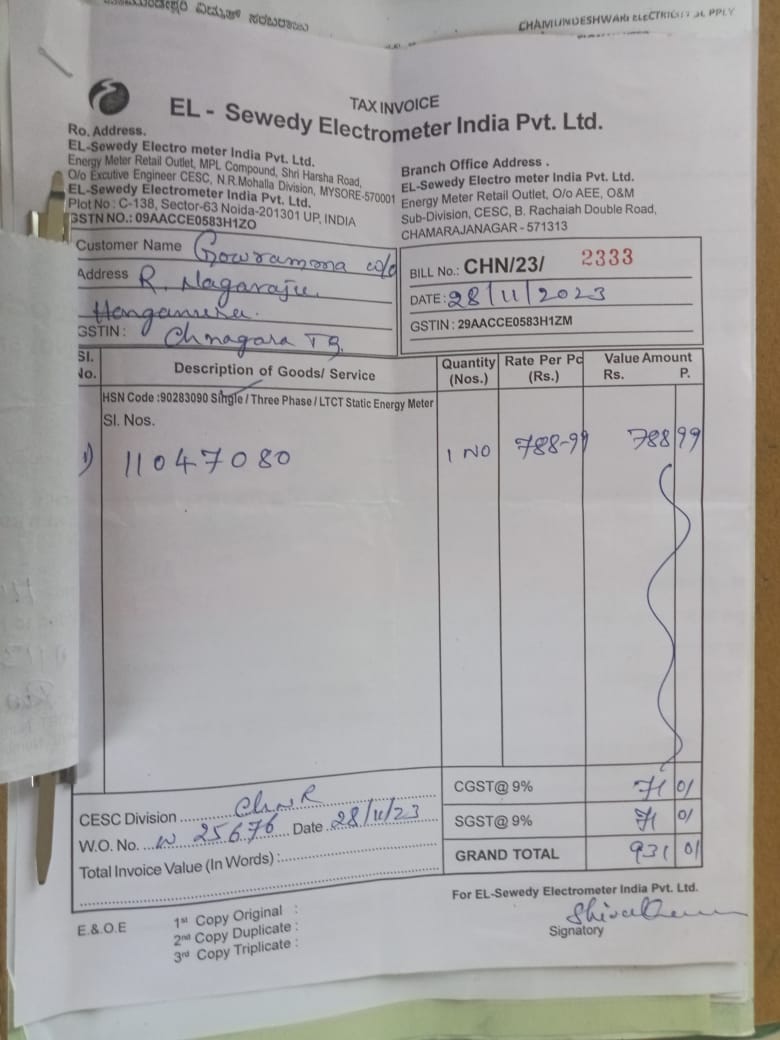 CHAMUNDESHWARI ELECTRICITY SUPPLY
TAX INVOICE
EL - Sewedy Electrometer India Pvt. Ltd.
Ro. Address.
EL-Sewedy Electro meter India Pvt. Ltd.
Energy Meter Retail Outlet, MPL Compound, Shri Harsha Road,
O/o Excutive Engineer CESC, N.R.Mohalla Division, MYSORE-570001
EL-Sewedy Electrometer India Pvt. Ltd.
Plot No : C-138, Sector-63 Noida-201301 UP, INDIA
GSTN NO.: 09AACCE0583H1ZO
Branch Office Address .
EL-Sewedy Electro meter India Pvt. Ltd.
Energy Meter Retail Outlet, O/o AEE, O&M
Sub-Division, CESC, B. Rachaiah Double Road,
CHAMARAJANAGAR - 571313
Customer Name Gowramma w/o
Address R. Nagaraju.
GSTIN : Chnagara
BILL No.: CHN/23/ 2333
DATE: 28/11/2023
GSTIN : 29AACCE0583H1ZM
Sl. No. Description of Goods/ Service Quantity (Nos.) Rate Per Pc (Rs.) Value Amount Rs. P.
HSN Code :90283090 Single / Three Phase / LTCT Static Energy Meter
Sl. Nos.
1) 11047080 1 NO 788-99 788 99
CGST@ 9% 71 01
SGST@ 9% 71 01
GRAND TOTAL 931 01
CESC Division ChNR
W.O. No. W 25676 Date 28/11/23
Total Invoice Value (In Words) :
For EL-Sewedy Electrometer India Pvt. Ltd.
Signatory
E.& O.E
1st Copy Original :
2nd Copy Duplicate :
3rd Copy Triplicate :